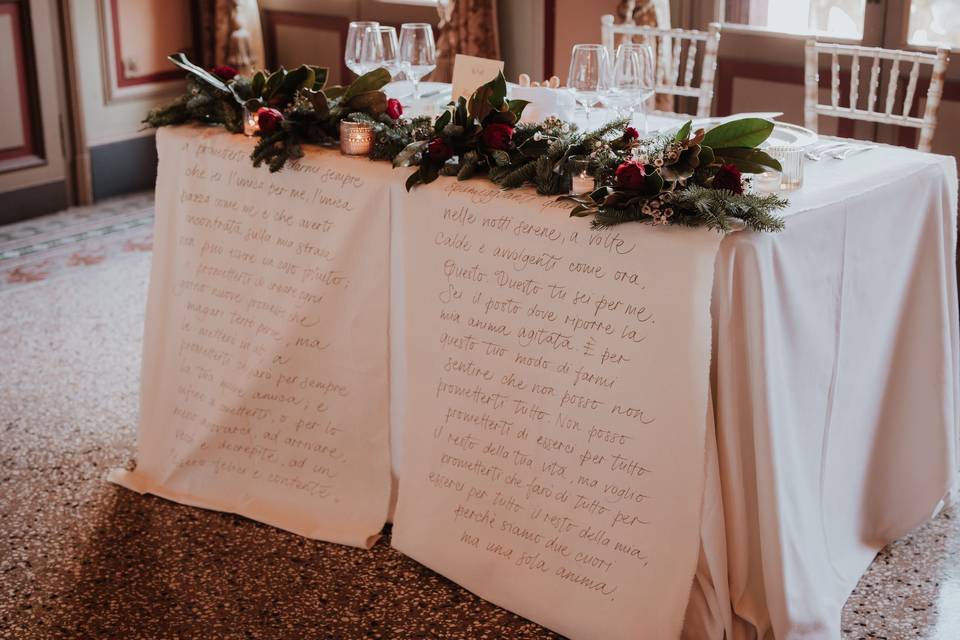 a prometterti farmi sempre
che sei l'unica per me, l'unica
pazza come me, e che averti
incontrata sulla mia strada
non può essere un caso
prometterti di creare ogni
giorno nuove promesse che
magari terrò per me, ma
le metterò in atto a
prometterti
e
a prometterti, o per lo
ad arrivare,
e decrepiti, ad un
felice e contenti.
nelle notti serene, a volte
calde e avvolgenti come ora.
Questo. Questo tu sei per me.
Sei il posto dove riporre la
mia anima agitata. È per
questo tuo modo di farmi
sentire che non posso non
prometterti tutto. Non posso
prometterti di esserci per tutto
il resto della tua vita, ma voglio
prometterti che farò di tutto per
esserci per tutto il resto della mia,
perchè siamo due cuori
ma una sola anima.